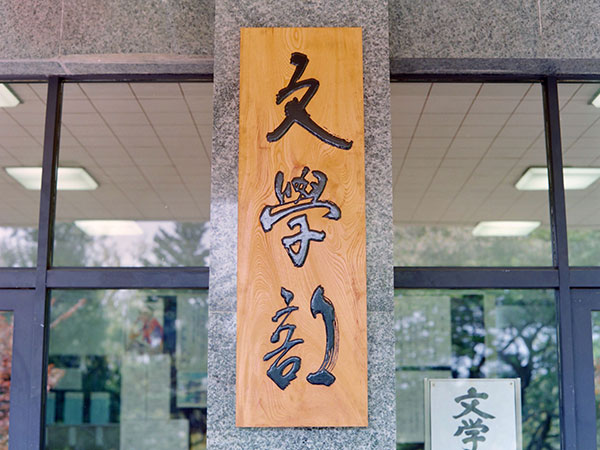 文學部
文学